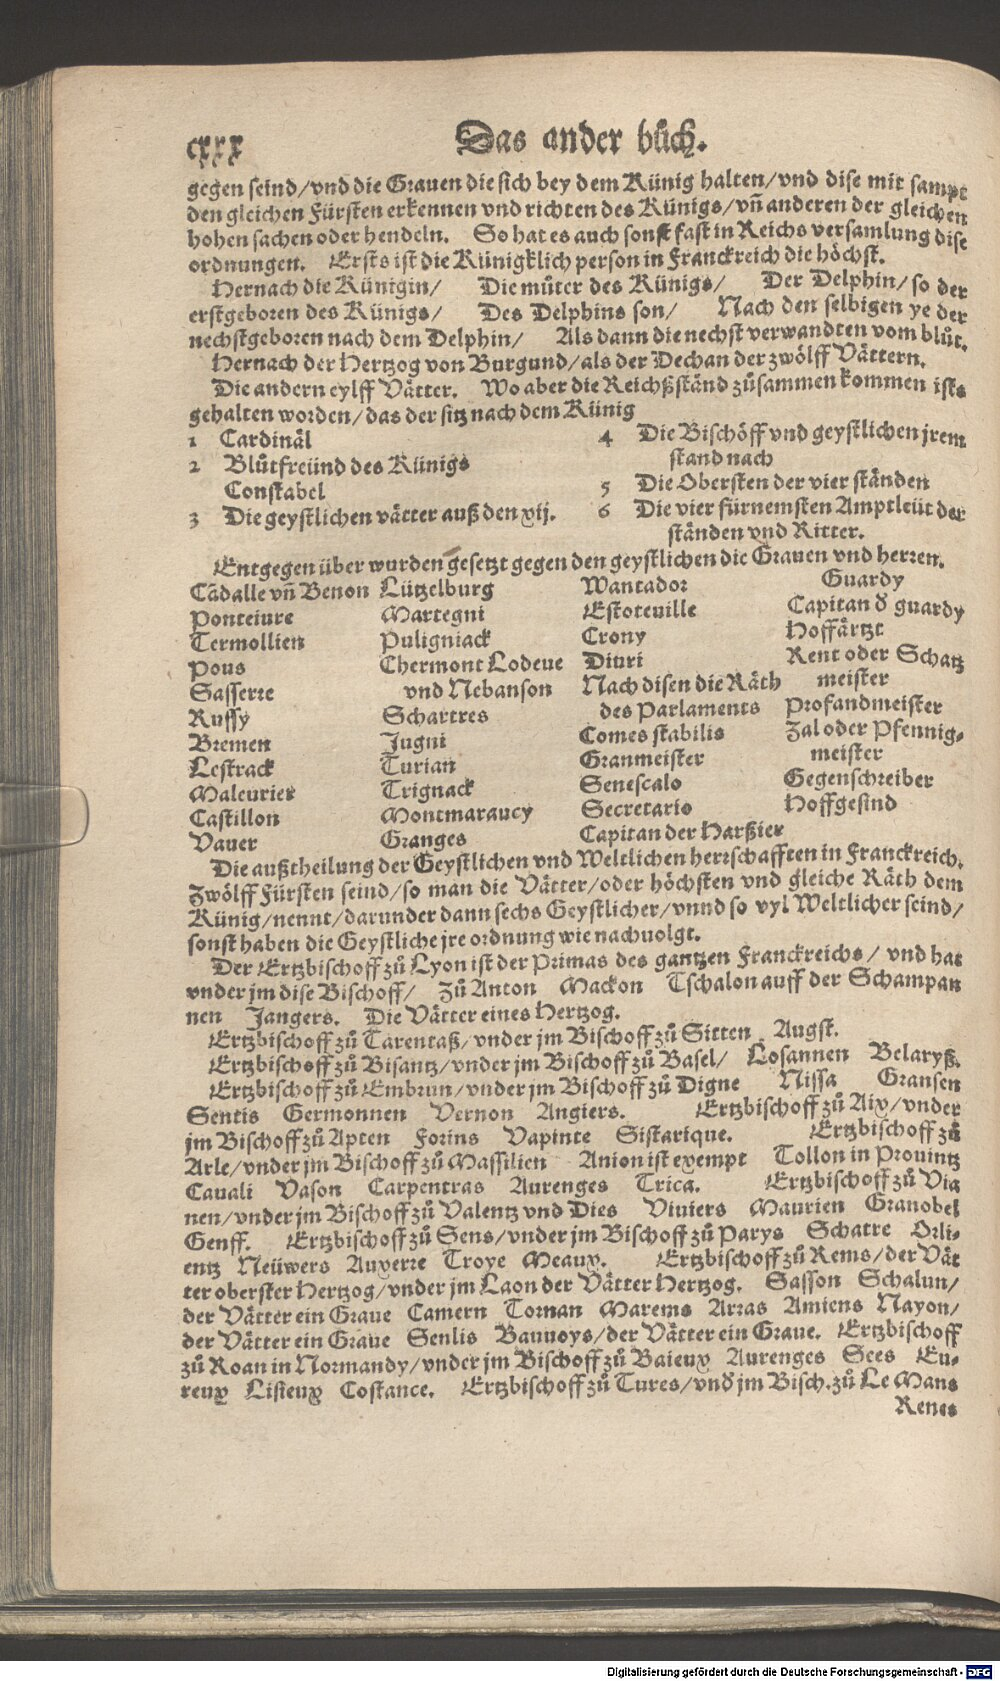 cxxx
Das ander bůch.
gegen seind/vnd die Grauen die sich bey dem Künig halten/vnd dise mit sampt
den gleichen Fürsten erkennen vnd richten des Künigs/vñ anderen der gleichen
hohen sachen oder hendeln. So hat es auch sonst fast in Reichs versamlung dise
ordnungen. Ersts ist die Künigklich person in Franckreich die höchst.
Hernach die Künigin/ Die můter des Künigs/ Der Delphin/so der
erstgeboren des Künigs/ Des Delphins son/ Nach den selbigen ye der
nechstgeboren nach dem Delphin/ Als dann die nechst verwandten vom blůt.
Hernach der Hertzog von Burgund/als der Dechan der zwölff Vättern.
Die andern eylff Vätter. Wo aber die Reichßständ zůsammen kommen ists
gehalten worden/das der sitz nach dem Künig
1 Cardinäl
2 Blůtfreünd des Künigs
Constabel
3 Die geystlichen vätter auß den xij.
4 Die Bischöff vnd geystlichen jrem
stand nach
5 Die Obersten der vier ständen
6 Die vier fürnemsten Amptleüt der
ständen vnd Ritter.
Entgegen über wurden gesetzt gegen den geystlichen die Grauen vnd herren.
Cādalle vñ Benon
Ponteiure
Termollien
Pous
Sasserre
Russy
Bremen
Lestrack
Maleuries
Castillon
Vauer
Lützelburg
Martegni
Puligniack
Chermont Lodeue
vnd Nebanson
Schartres
Jugni
Turian
Trignack
Montmaraucy
Granges
Wantador
Estoteuille
Crony
Diuri
Nach disen die Räth
des Parlaments
Comes stabilis
Granmeister
Senescalo
Secretario
Capitan der Harßier
Guardy
Capitan ď guardy
Hoffärtzt
Rent oder Schatz
meister
Profandmeister
Zal oder Pfennig-
meister
Gegenschreiber
Hoffgesind
Die außtheilung der Geystlichen vnd Weltlichen herrschafften in Franckreich.
Zwölff Fürsten seind/so man die Vätter/oder höchsten vnd gleiche Räth dem
Künig/nennt/darunder dann sechs Geystlicher/vnnd so vyl Weltlicher seind/
sonst haben die Geystliche jre ordnung wie nachuolgt.
Der Ertzbischoff zů Lyon ist der Primas des gantzen Franckreichs/ vnd hat
vnder jm dise Bischoff/ Zů Anton Mackon Tschalon auff der Schampan
nen Jangers. Die Vätter eines Hertzog.
Ertzbischoff zů Tarentaß/vnder jm Bischoff zů Sitten Augst.
Ertzbischoff zů Bisantz/vnder jm Bischoff zů Basel/ Losannen Belaryß.
Ertzbischoff zů Embrun/vnder jm Bischoff zů Digne Nissa Gransen
Sentis Germonnen Vernon Angiers. Ertzbischoff zů Aix/vnder
jm Bischoff zů Apten Forins Vapinte Sistarique. Ertzbischoff zů
Arle/vnder jm Bischoff zů Massilien Anion ist exempt Tollon in Prouintz
Cauali Vason Carpentras Aurenges Trica. Ertzbischoff zů Via
nen/vnder jm Bischoff zů Valentz vnd Dies Viuiers Maurien Granobel
Genff. Ertzbischoff zů Sens/vnder jm Bischoff zů Parys Schatre Orli-
entz Neüwers Auxerre Troye Meaux. Ertzbischoff zů Rems/der Vät
ter oberster Hertzog/vnder jm Laon der Vätter Hertzog. Sasson Schalun/
der Vätter ein Graue Camern Tornan Marems Arras Amiens Nayon/
der Vätter ein Graue Senlis Bauuoys/der Vätter ein Graue. Ertzbischoff
zů Roan in Normandy/vnder jm Bischoff zů Baieux Aurenges Sees Eu-
reux Lisieux Costance. Ertzbischoff zů Tures/vnď jm Bisch. zů Le Mans
Renes
Digitalisierung gefördert durch die Deutsche Forschungsgemeinschaft - DFG